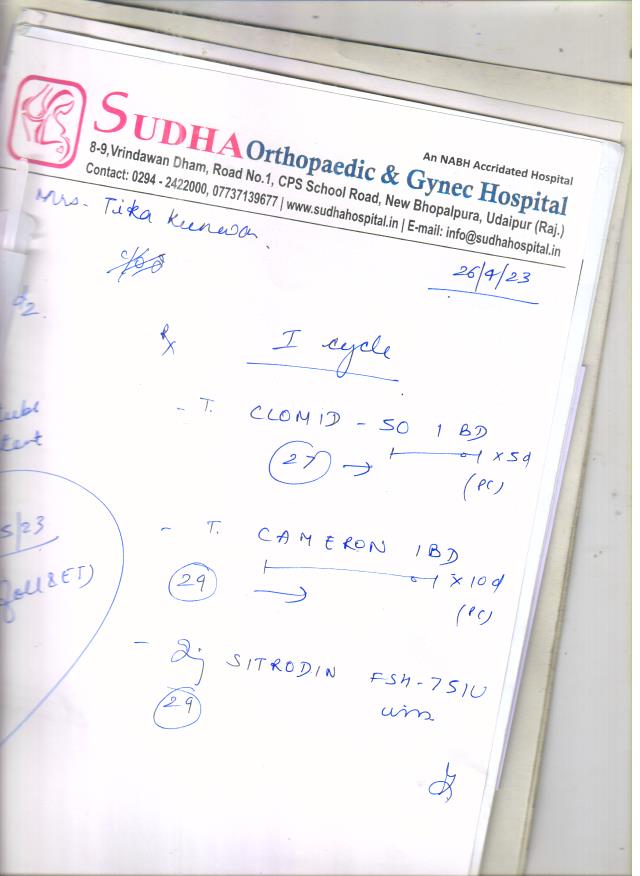 SUDHA Orthopaedic & Gynec Hospital
An NABH Accridated Hospital
8-9, Vrindawan Dham, Road No.1, CPS School Road, New Bhopalpura, Udaipur (Raj.)
Contact: 0294 - 2422000, 07737139677 | www.sudhahospital.in | E-mail: info@sudhahospital.in
Mrs. Tika Kunwar
26/4/23
Rx I cycle
- T. CLOMID - 50 1 BD
27 → x 5d
(PC)
- T. CAMERON 1BD
29 → x 10d
(PC)
- Inj SITRODIN FSH - 75IU
29
tube
5/23